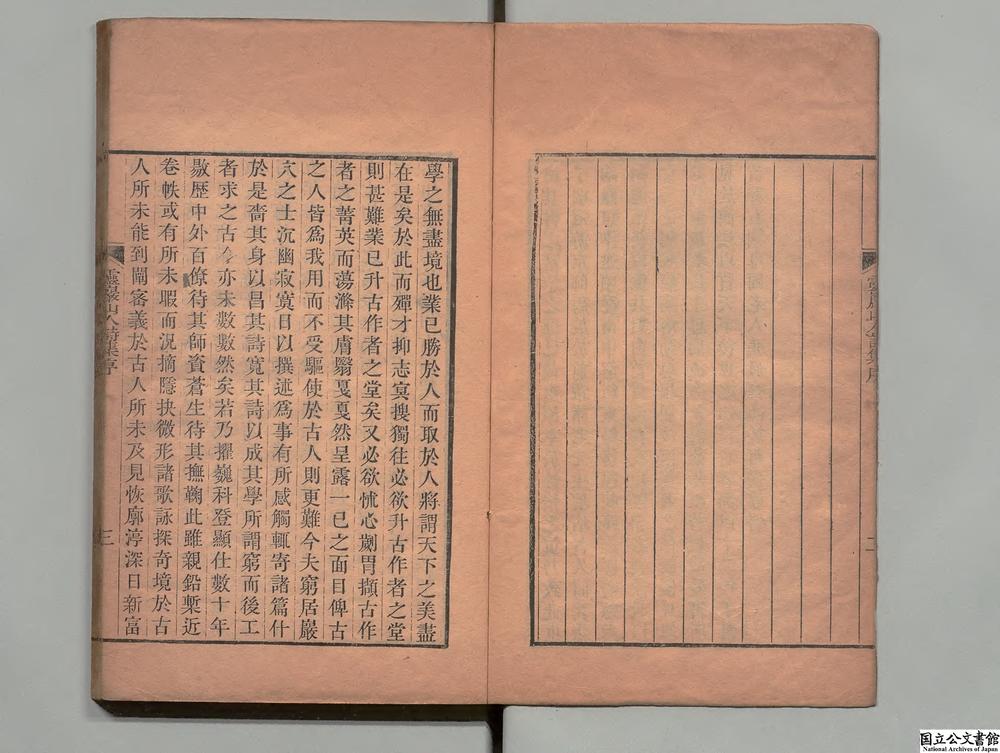 學之無盡境也業已勝於人而取於人將謂天下之美盡
在是矣於此而殫才抑志冥搜獨往必欲升古作者之堂
則甚難業已升古作者之堂矣又必欲怵心劌胃擷古作
者之菁英而蕩滌其膚翳戛戛然呈露一已之面目俾古
之人皆爲我用而不受驅使於古人則更難今夫窮居巖
穴之士沉幽寂寞日以撰述爲事有所感觸輒寄諸篇什
於是嗇其身以昌其詩寬其詩以成其學所謂窮而後工
者求之古今亦未數數然矣若乃擢巍科登顯仕數十年
敭歷中外百僚待其師資蒼生待其撫鞠此雖親鉛槧近
卷帙或有所未暇而況摘隱抉微形諸歌詠探奇境於古
人所未能到闡客義於古人所未及見恢廓渟深日新富
靈巖山人詩集序
三
二
国立公文書館
National Archives of Japan